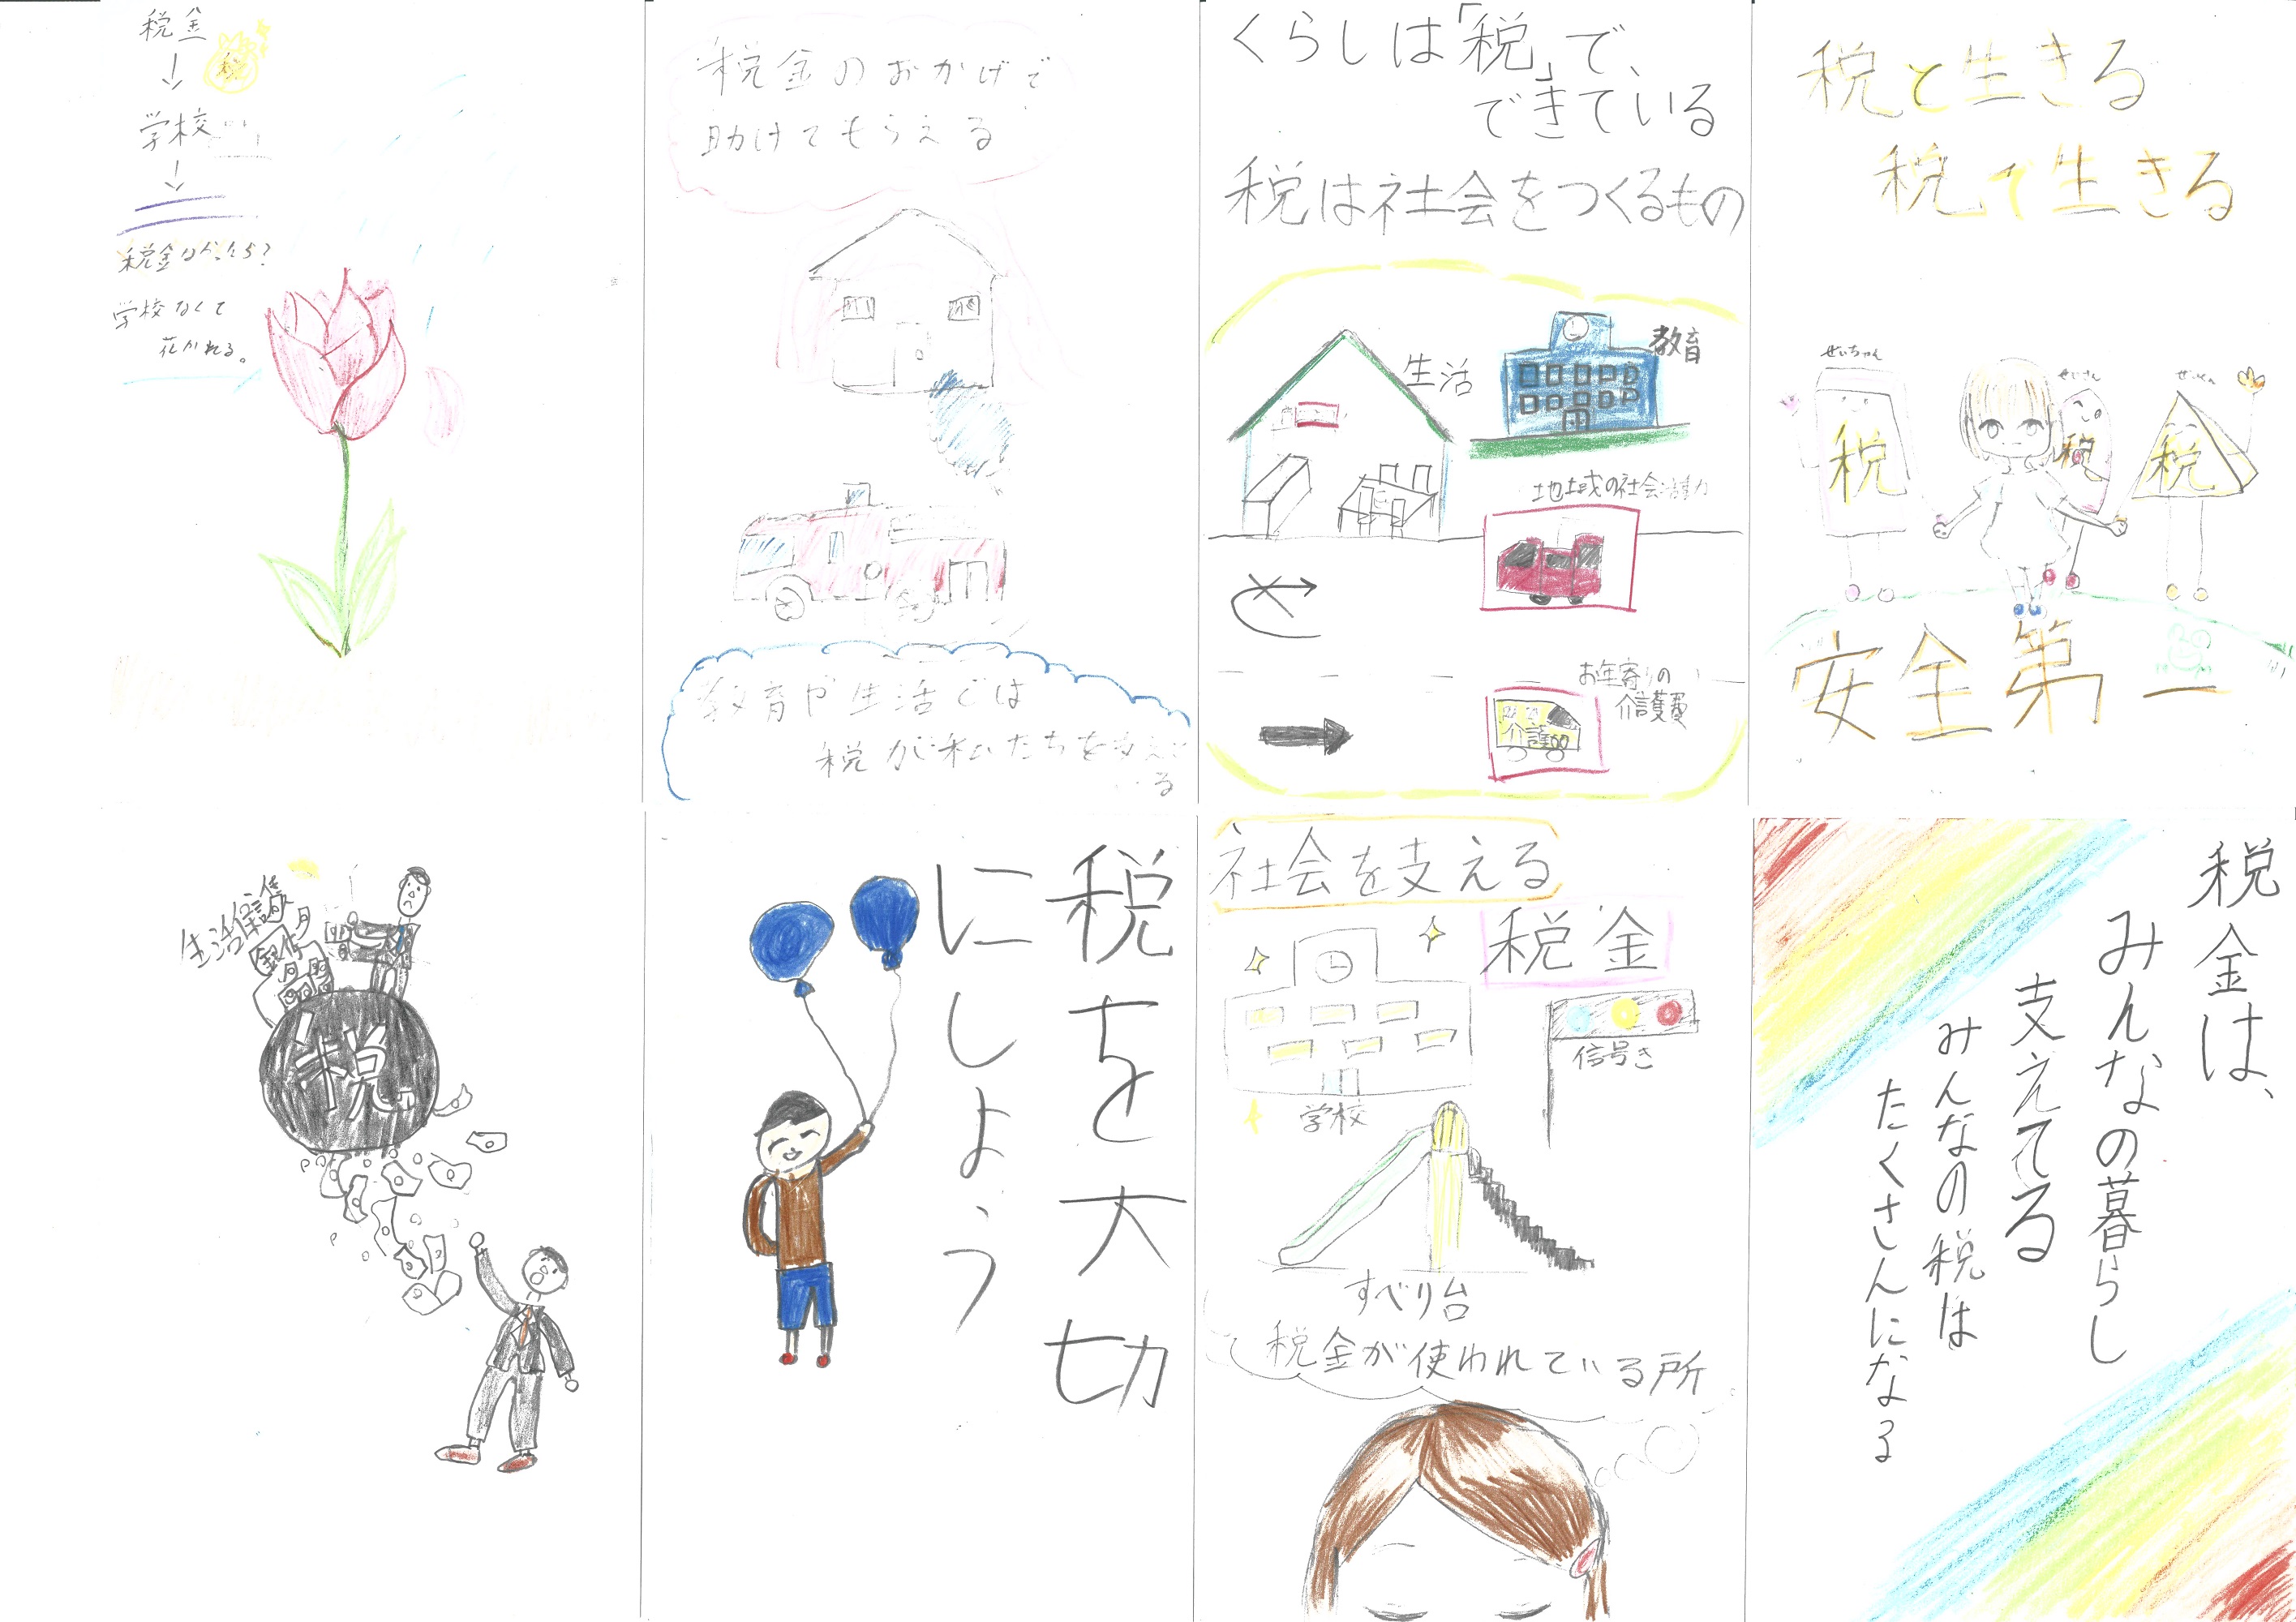 税金
税
↓
学校
↓
税金なかったら？
学校なくて
花かれる。
税金のおかげで
助けてもらえる
教育や生活では
税が私たちを支えて
いる
くらしは「税」で、
できている
税は社会をつくるもの
生活
教育
地域の社会活動
お年寄りの
介護費
介護
税と生きる
税で生きる
ぜいちゃん
ぜいさん
ぜいくん
税
税
税
安全第一
生活保護
税
税を大切
にしよう
社会を支える
税金
学校
信号き
すべり台
税金が使われている所
税金は、
みんなの暮らし
支えてる
みんなの税は
たくさんになる